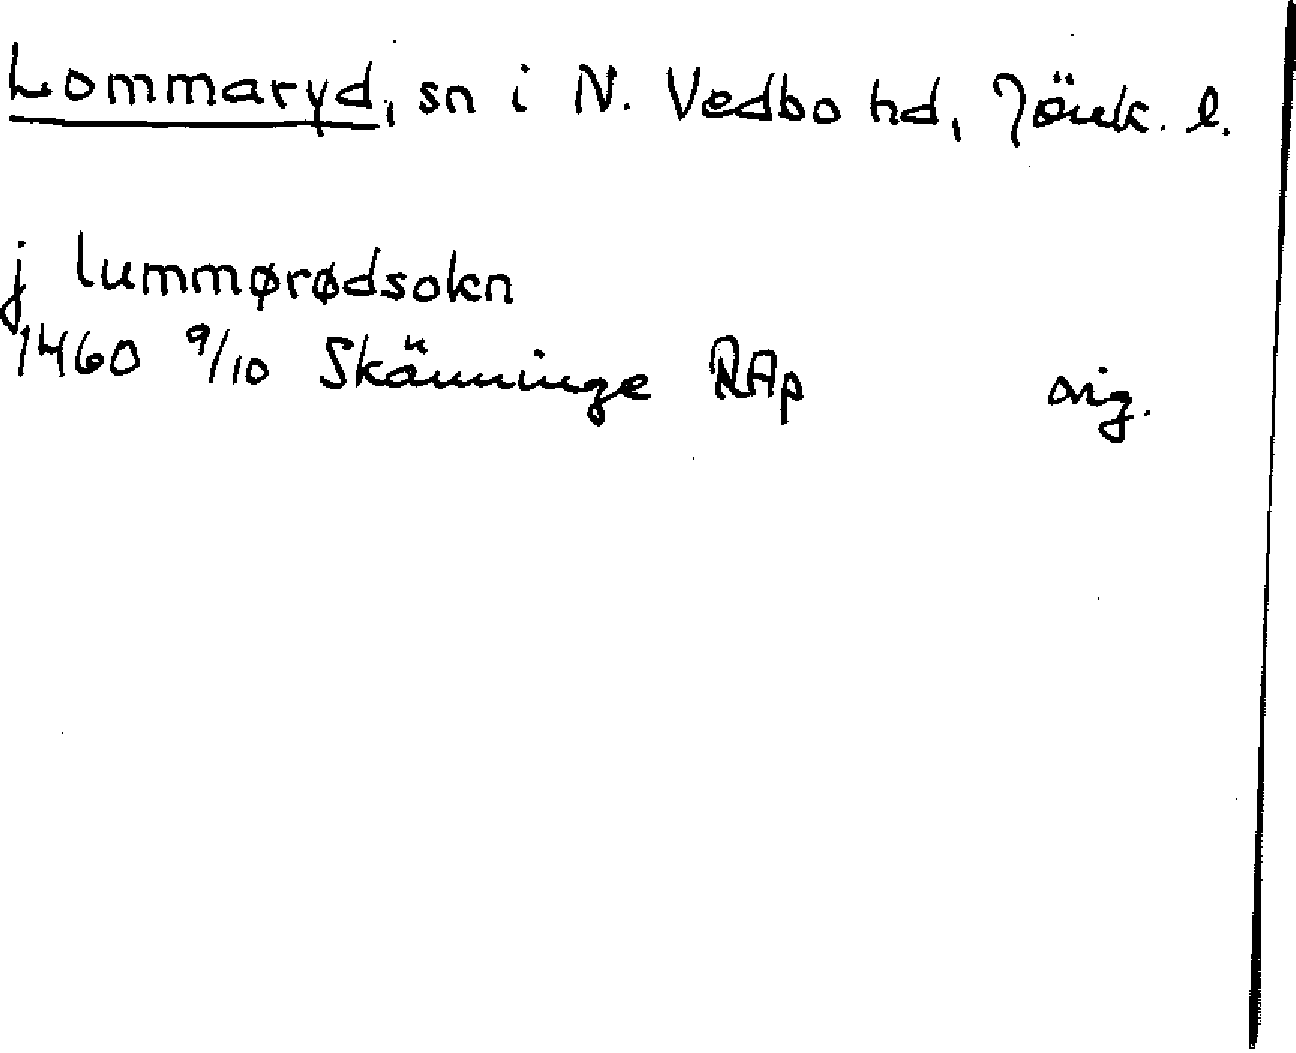 Lommaryd, sn i N. Vedbo hd, Jönk. l.
j lummørødsokn
1460 9/10 Skänninge RAp orig.